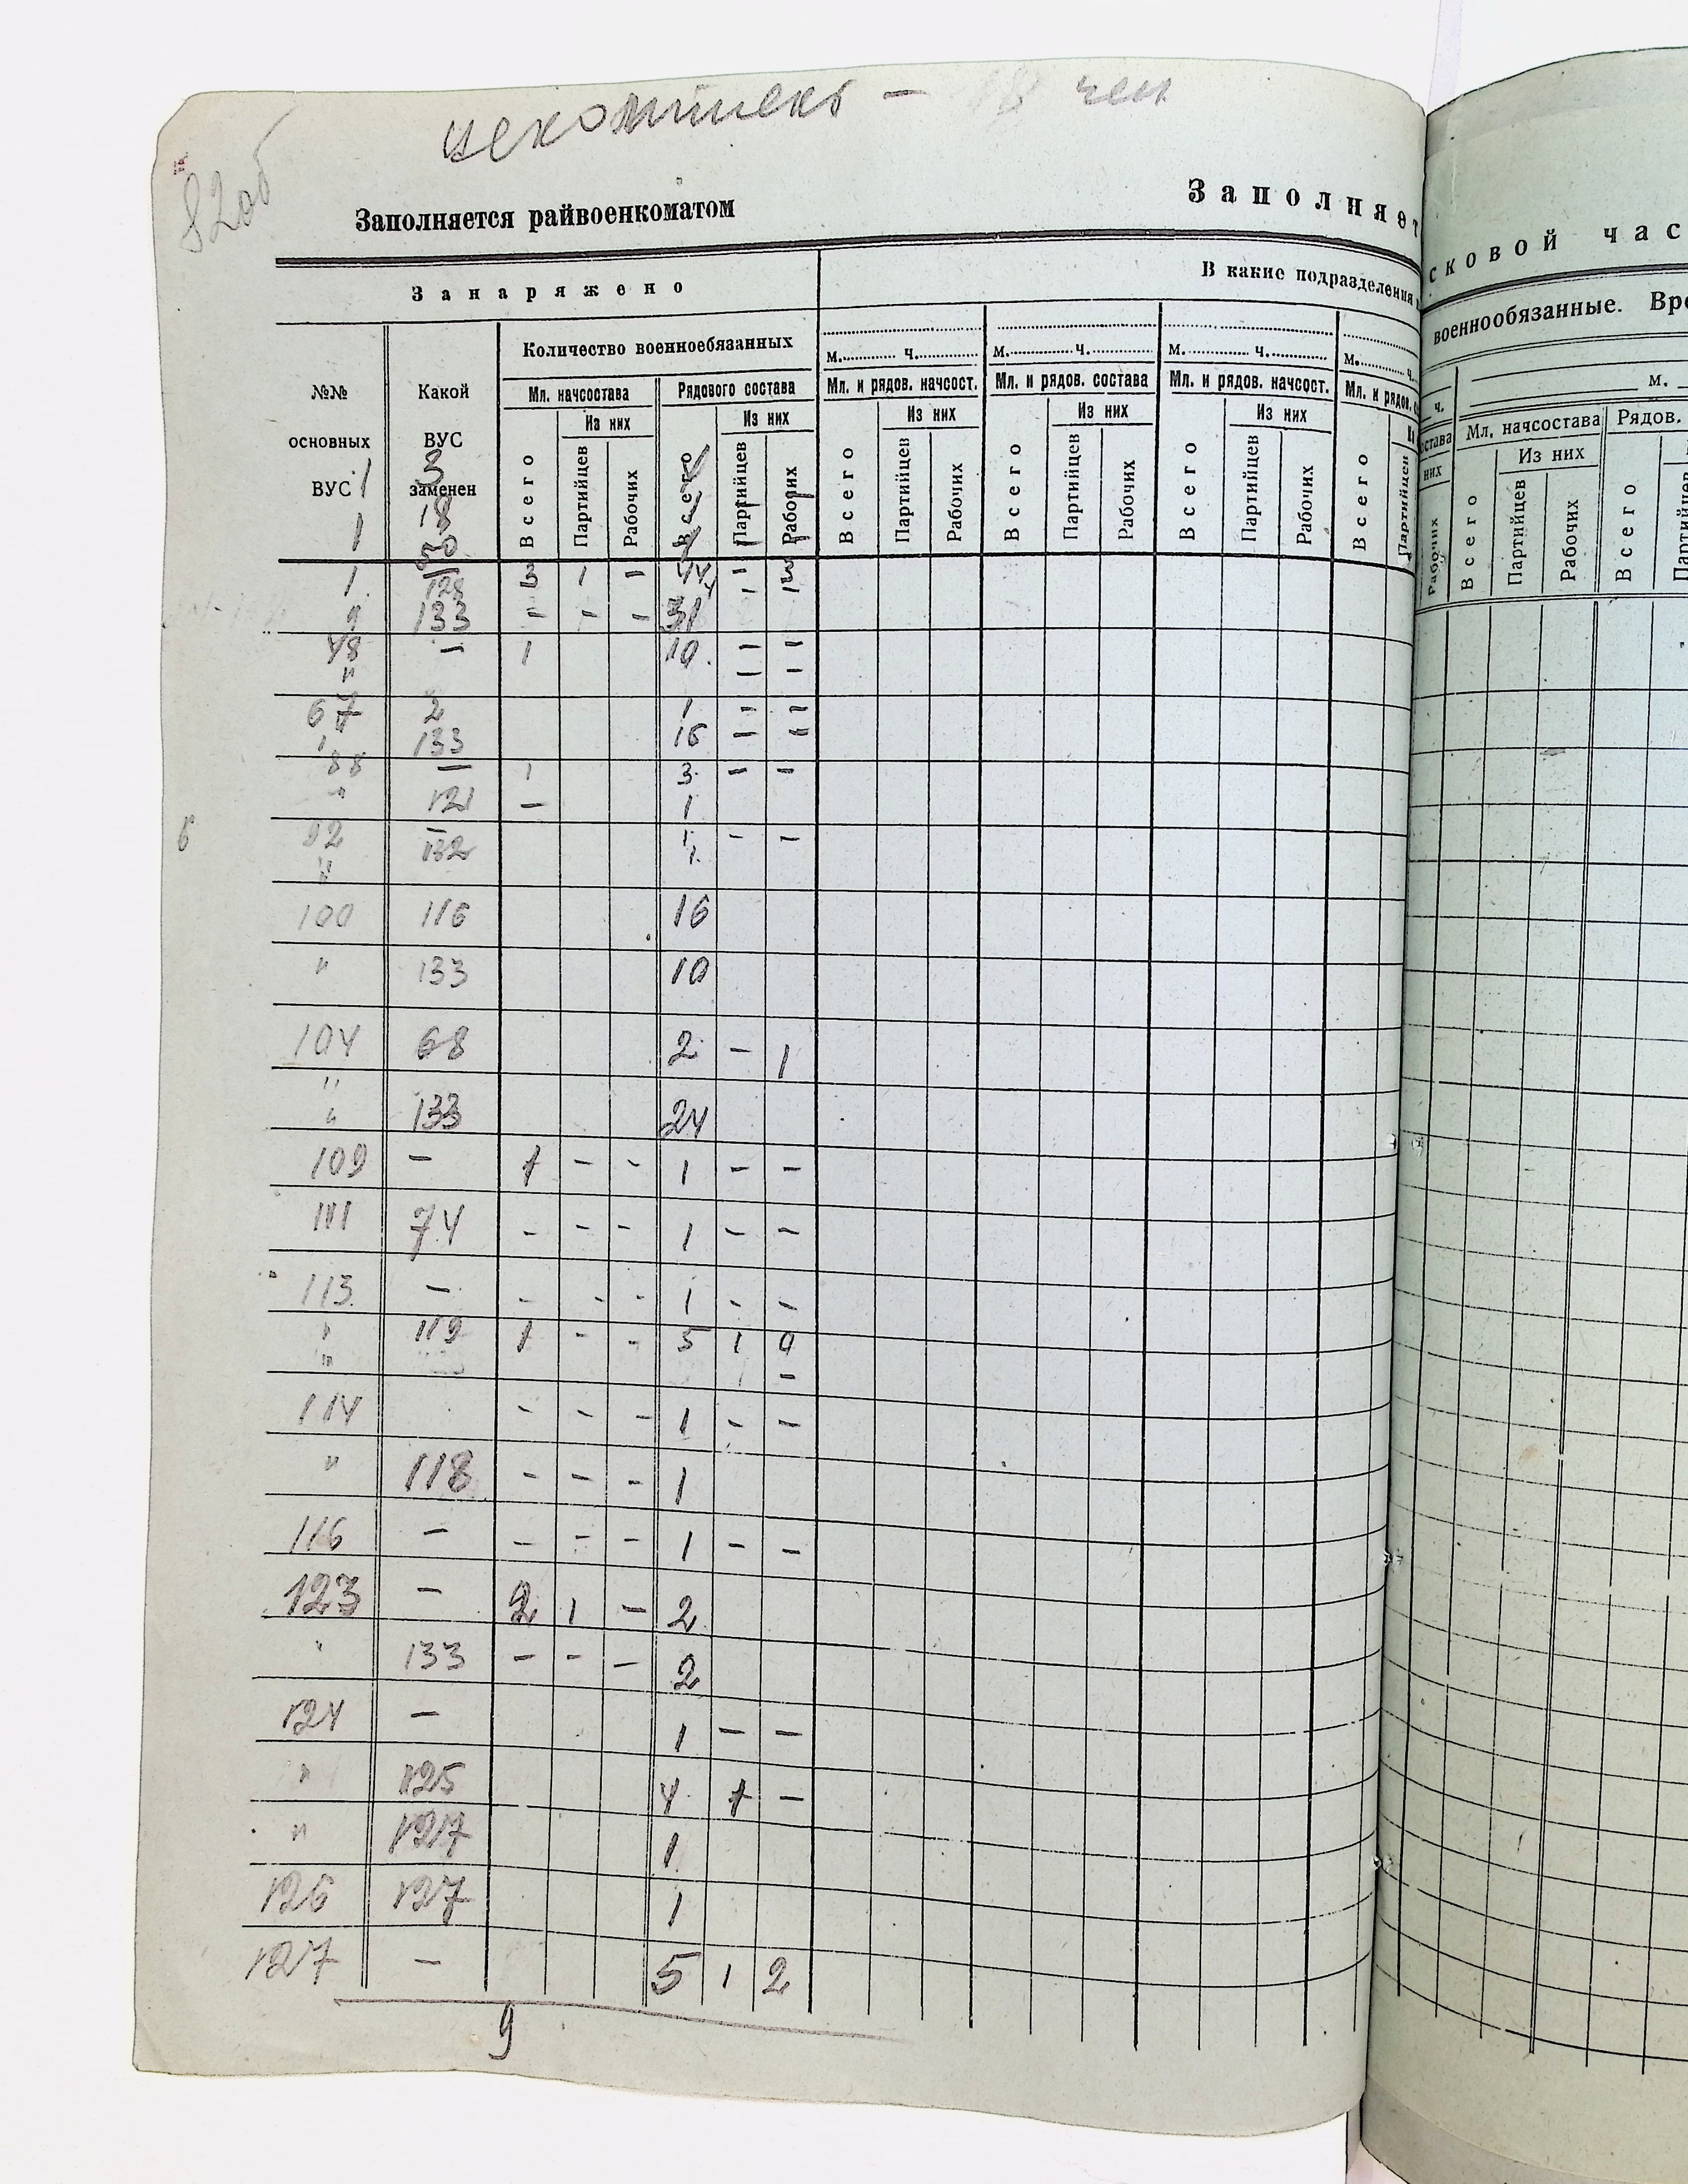 82об
чел
Заполняется райвоенкоматом
Заполняет
сковой час
Занаряжено
В какие подразделения
военнообязанные. Вре
Количество военнообязанных
м. ч. м. ч. м. ч. м. ч.
ч. м.
№№ основных ВУС
Какой ВУС заменен
Мл. начсостава Рядового состава
Мл. и рядов. начсост. Мл. и рядов. состава Мл. и рядов. начсост. Мл. и рядов.
става Мл. начсостава Рядов.
Из них Из них Из них Из них Из них
них Из них
Всего Партийцев Рабочих Всего Партийцев Рабочих Всего Партийцев Рабочих Всего Партийцев Рабочих Всего Партийцев Рабочих Всего Партийцев
Рабочих Всего Партийцев Рабочих Всего
1 3
1 18
50
1. 128 3 1 -
9 133 - - - 31
48 - 1 10. - -
" - -
67 2 1 - -
133 16 - "
88 - 1 3. - -
" 121 - 1
92 - 1 - -
" 132 1.
100 116 16
" 133 10
104 68 2 - 1
"
" 133 24
109 - 1 - - 1 - -
111 74 - - - 1 - -
113. - - - - 1 - -
" 119 1 - - 5 1 0
" -
114 - - - 1 - -
" 118 - - - 1
116 - - - - 1 - -
123 - 2 1 - 2
" 133 - - - 2
124 - 1 - -
" 125 4. 1 -
" 127 1
126 127 1
127 - 5 1 2
9